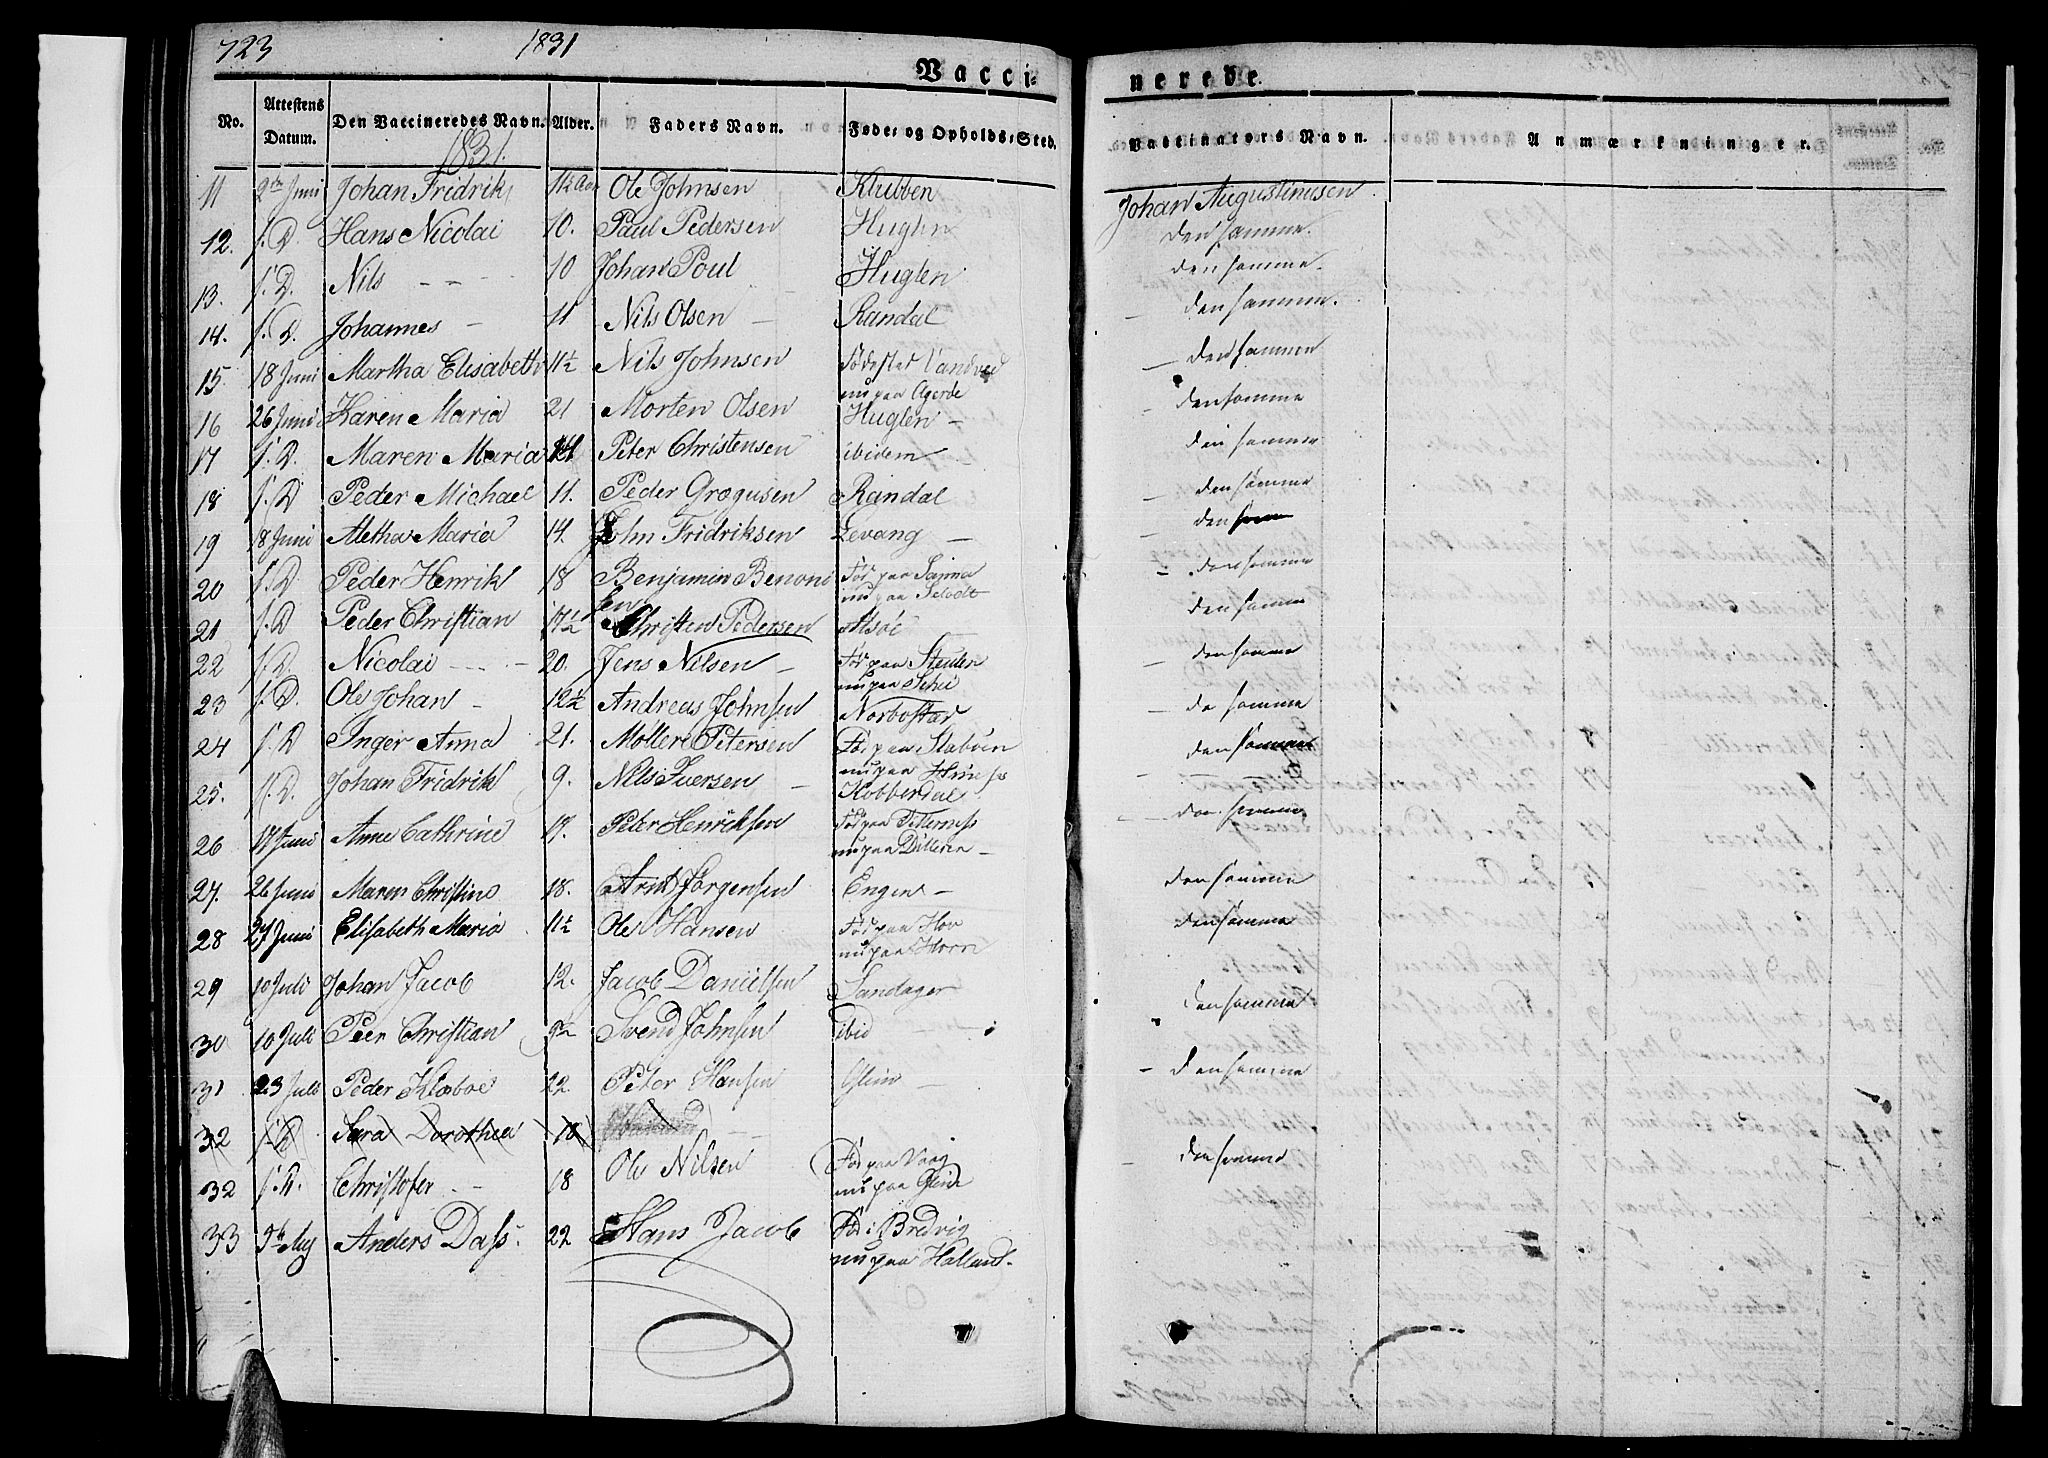 723 1831
Vacci- nerede
No. Attestens Datum. Den Vaccineredes Navn. Alder. Faders Navn. Føde- og Opholds-Sted. Vaccinators Navn. Anmærkninger.
1831.
11 2den Juni Johan Fridrik 11½ Aar Ole Johnsen Klubben Johan Augustinusen
12. s. D. Hans Nicolai 10. Paul Pedersen Huglen den samme.
13. s. D. Nils - - 10 Johan Poul Huglen den samme.
14. s. D. Johannes - 11 Nils Olsen - Randal den samme.
15. 18 Juni Martha Elisabeth 11½ Nils Johnsen Fødested Vandved - den samme
nu paa Agerøe
16 26 Juni Karen Maria 21 Morten Olsen Huglen - - den samme
17 s. D. Maren Maria Peter Christensen ibidem - den samme
18 s. D Peder Michael 11. Peder Gregusen Randal - den samme
19 18 Juni Aletha Maria 14. John Fridriksen Levang - - den samme
20 s. D Peder Henrik 18 Benjamin Benoni Fød paa Sanna - den samme
sen nu paa
21 s. D Peder Christian 17½ Christen Pedersen Alsøe den samme
22 s. D. Nicolai - - - - 20. Jens Nilsen - Fød paa - den samme
nu paa
23 s. D. Ole Johan - 12½ Andreas Johnsen Norbostad - de samme
24 s. D Inger Anna 21. Møller Petersen Fød paa Stabøen den samme
nu paa
25. s. D. Johan Fridrik 9. Nils Iversen - Kobberdal - den samme
26 17 Juni Anne Cathrine 19. Peter Henriksen Fød paa Ditternes
nu paa
27. 26 Juni Maren Christine 18. Arnt Jørgensen Engen - den samme
28 27 Juni Elisabeth Maria 11½ Ole Hansen Fød paa Hov den samme
nu paa Horn
29 10 Juli Johan Jacob 12. Jacob Danielsen Sandager den samme
30 10 Juli Peer Christian 9½ Svend Johnsen ibid
31 23 Juli Peder Klæboe 22 Peter Hansen Glein - - den samme
32 s. D. Sara Dorothea 18
32 s. D. Christofer - - 18 Ole Nilsen Fød paa Vaag - den samme
nu paa Glein
33 9de Aug Anders Dass. 22 Hans Jacob Fød i Bredvig
nu paa Halland.